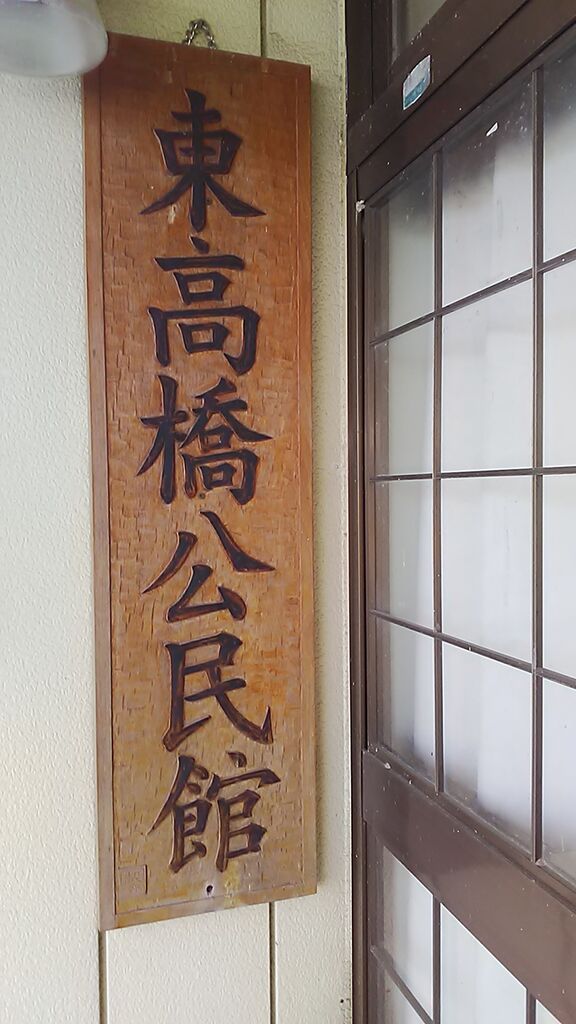 東高橋公民館